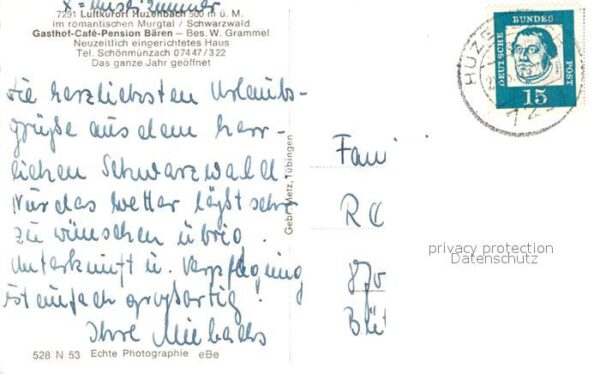 X = unser Zimmer
7291 Luftkurort Huzenbach 500 m ü. M.
im romantischen Murgtal / Schwarzwald
Gasthof-Café-Pension Bären – Bes. W. Grammel
Neuzeitlich eingerichtetes Haus
Tel. Schönmünzach 07447/322
Das ganze Jahr geöffnet
Die herzlichsten Urlaubs-
grüße aus dem herr-
lichen Schwarzwald.
Nur das Wetter läßt sehr
zu wünschen übrig.
Unterkunft u. Verpflegung
ist einfach großartig!
Ihre
528 N 53 Echte Photographie eBe
Gebr. Metz, Tübingen
DEUTSCHE
BUNDES
POST
15
HUZE
Fami
privacy protection
Datenschutz